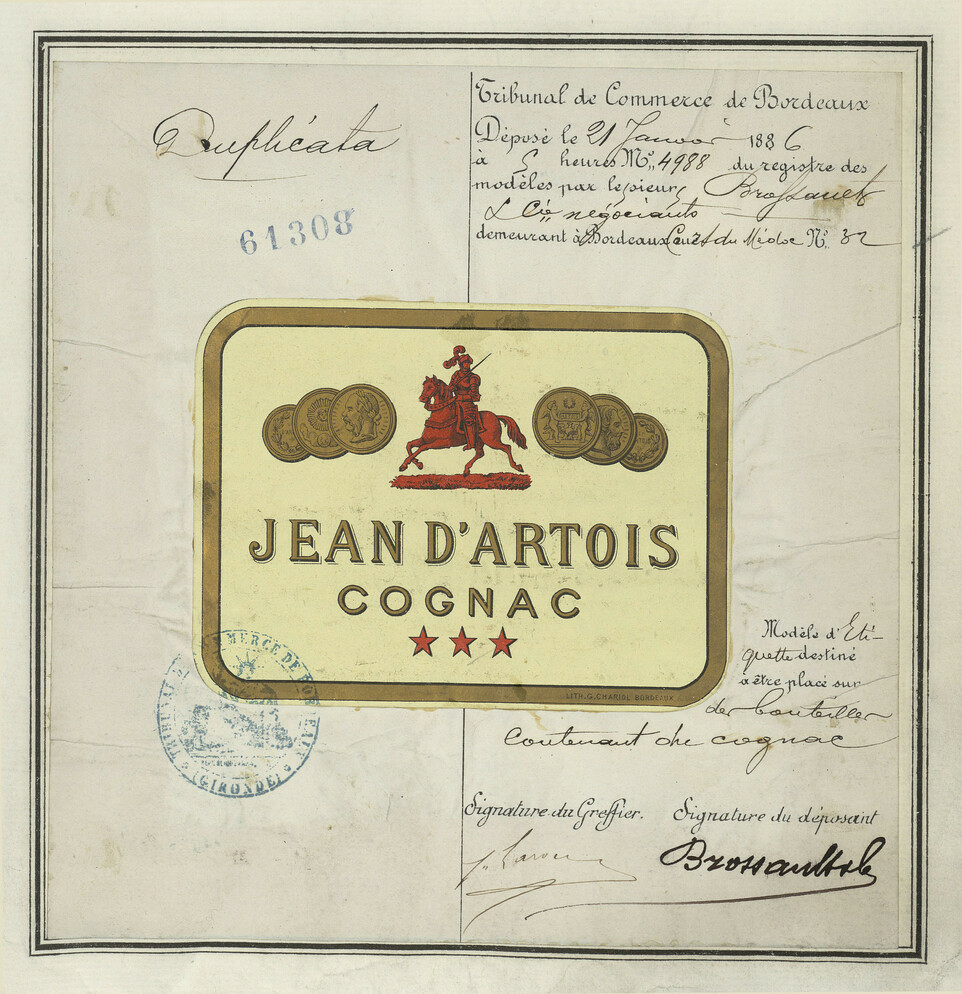 Duplicata
61308
Tribunal de Commerce de Bordeaux
Déposé le 21 Janvier 1886
à 5 heures M. N° 4988 du registre des
modèles par le sieur Brossault
& Cie négociants
demeurant à Bordeaux Cours du Médoc N° 32
JEAN D'ARTOIS
COGNAC
LITH. G. CHARIOL BORDEAUX
Modèle d'Eti-
quette destiné
à être placé sur
des bouteilles
contenant du cognac
TRIBUNAL DE COMMERCE DE BORDEAUX
(GIRONDE)
Signature du Greffier. Signature du déposant
Brossault & Cie